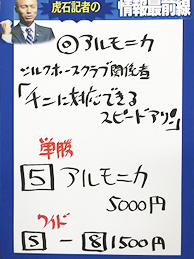 虎石記者の
情報最前線
◎アルモニカ
シルクホースクラブ関係者
「千二に対応できる
スピードアリ」
単勝
5 アルモニカ
5000円
ワイド
5 - 8 1500円